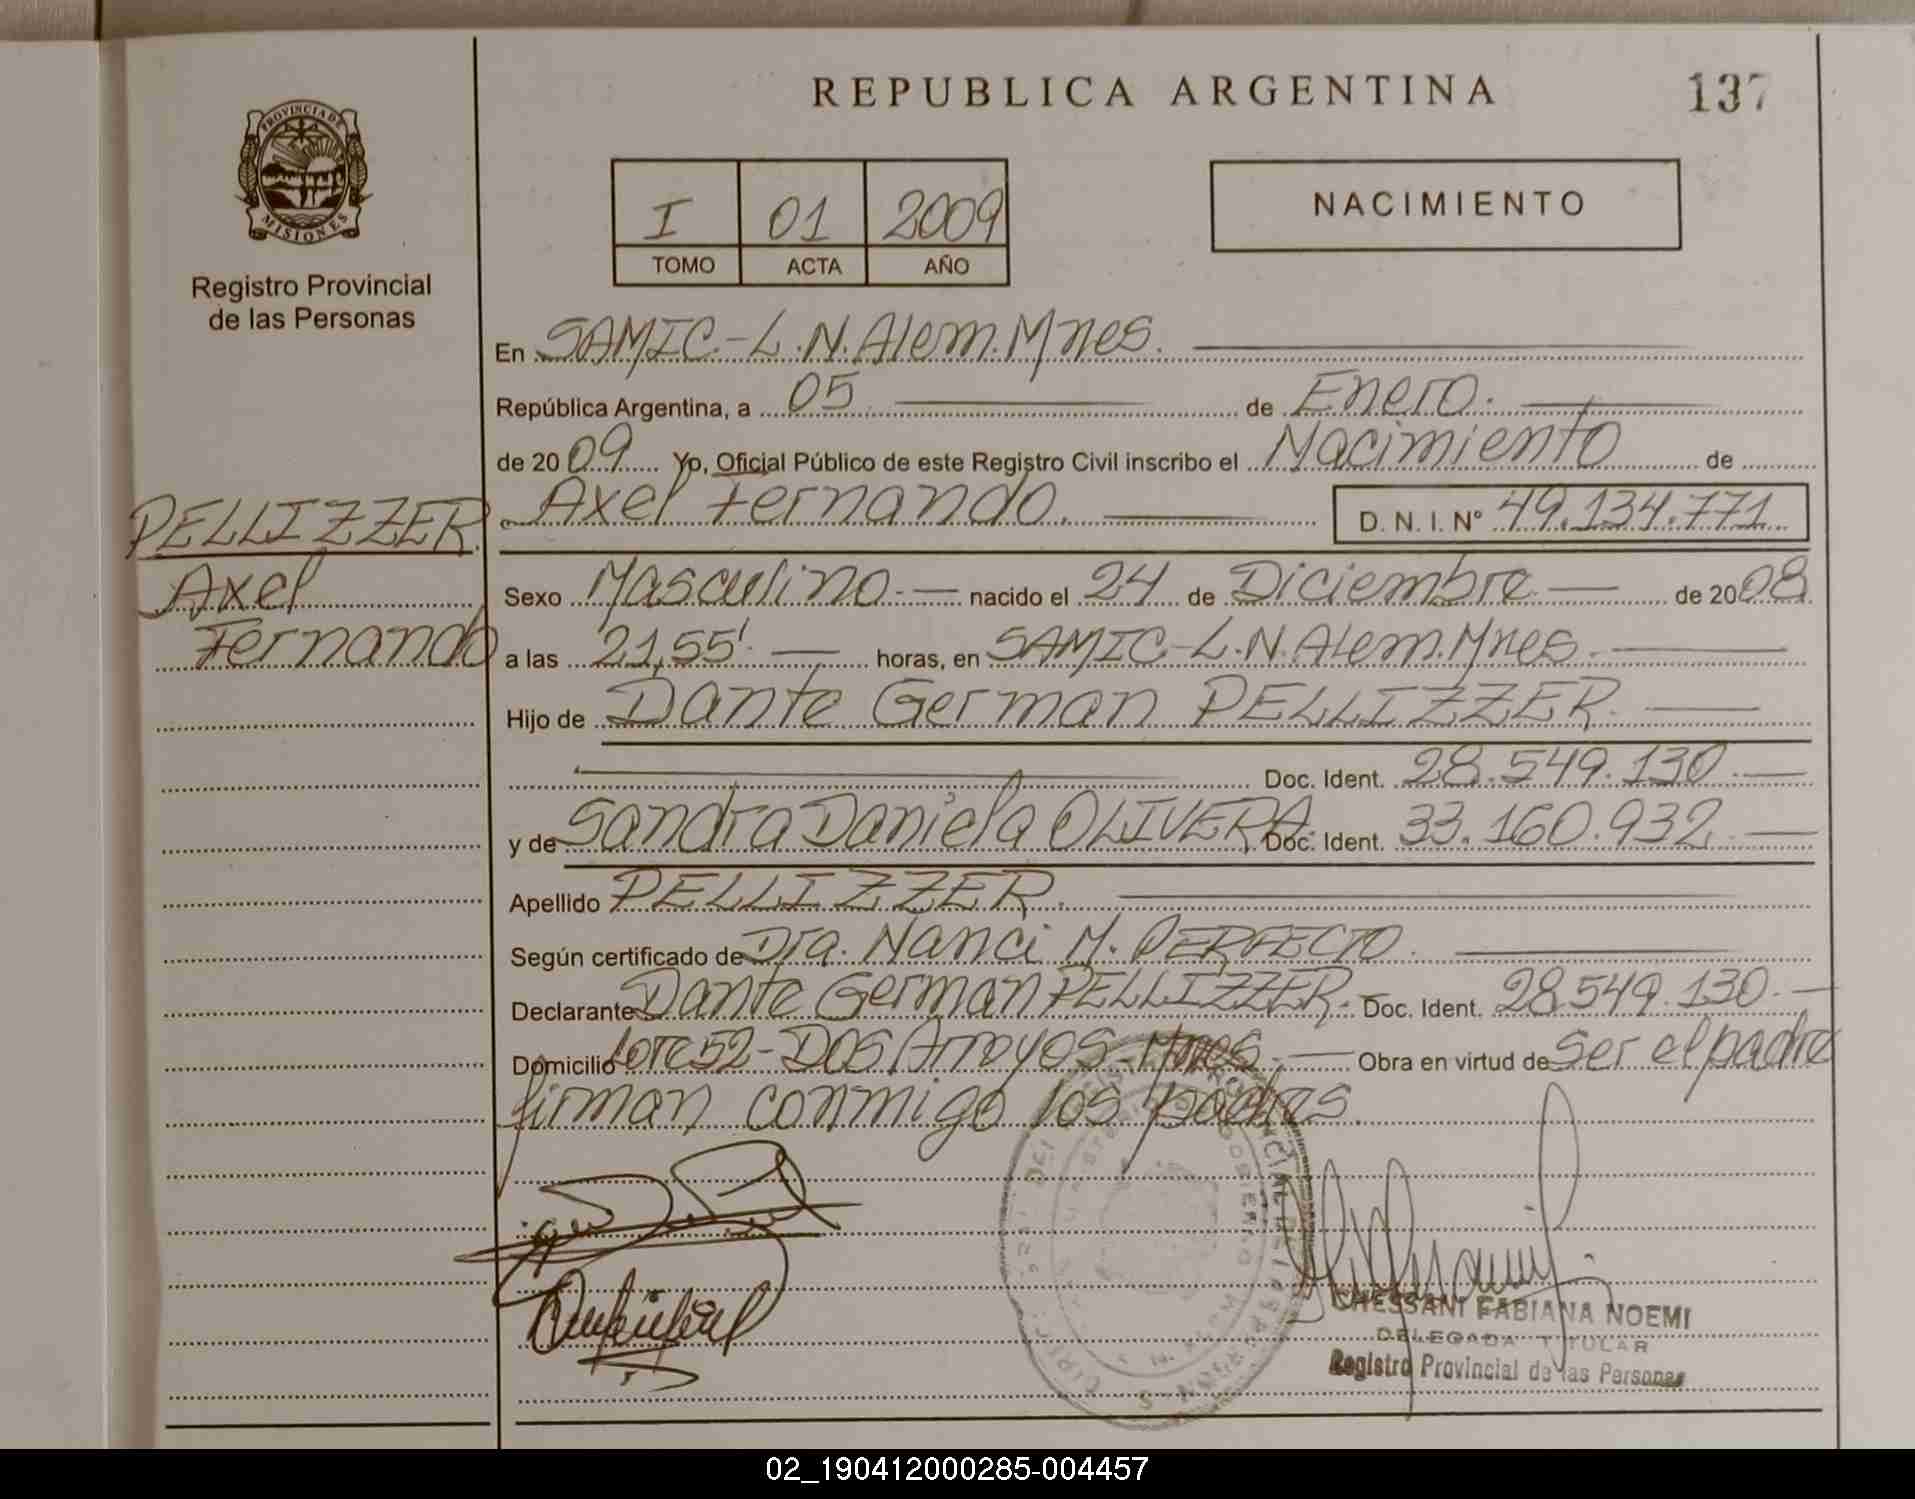 REPUBLICA ARGENTINA
137
PROVINCIA DE MISIONES
Registro Provincial
de las Personas
I 01 2009
TOMO ACTA AÑO
NACIMIENTO
En SAMIC.-L.N.Alem.Mnes.
República Argentina, a 05 de Enero.
de 2009 Yo, Oficial Público de este Registro Civil inscribo el Nacimiento de
Axel Fernando. D. N. I. Nº 49.134.771
PELLIZZER.
Axel
Fernando
Sexo Masculino.- nacido el 24 de Diciembre de 2008
a las 21,55' horas, en SAMIC-L.N.Alem.Mnes.
Hijo de Dante German PELLIZZER.
Doc. Ident. 28.549.130.
y de Sandra Daniela OLIVERA. Doc. Ident. 33.160.932
Apellido PELLIZZER.
Según certificado de Dra. Nanci M. PERFECTO.
Declarante Dante German PELLIZZER.- Doc. Ident. 28.549.130.-
Domicilio Lote 52-DOS Arroyos-Mnes.- Obra en virtud de Ser el padre
firman conmigo los padres.
CHESSANI FABIANA NOEMI
DELEGADA TITULAR
Registro Provincial de las Personas
02_190412000285-004457